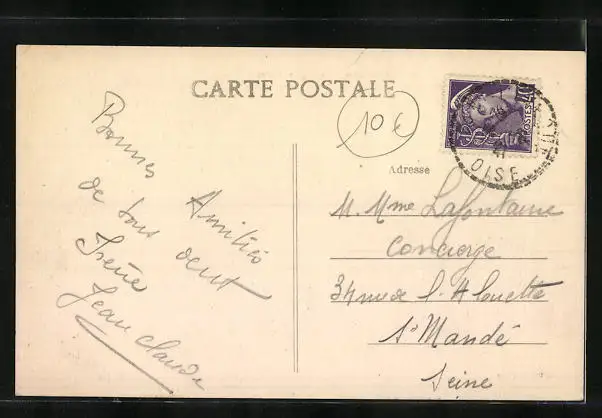 CARTE POSTALE
10 €
POSTES
OISE
Adresse
Bonnes Amitiés
de tous deux
Irène
Jean Claude
M. Mme Lafontaine
Concierge
34 rue de l'Alouette
St Mandé
Seine